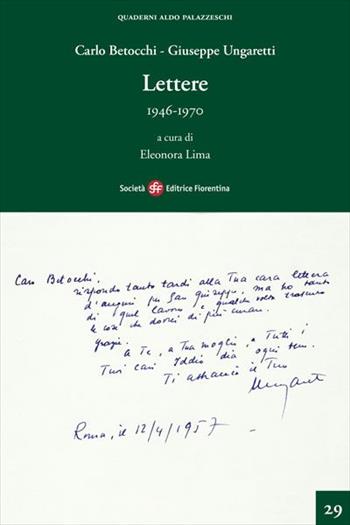 QUADERNI ALDO PALAZZESCHI
Carlo Betocchi - Giuseppe Ungaretti
Lettere
1946-1970
a cura di
Eleonora Lima
Società sef Editrice Fiorentina
Caro Betocchi,
rispondo tanto tardi alla Tua cara lettera
d'auguri per San Giuseppe, ma ho tanto
di quel lavoro e qualche volta trascuro
le cose che dovrei di più curare.
Grazie.
A Te, a Tua moglie, a Tutti i
Tuoi cari Iddio dia ogni bene.
Ti abbraccio il Tuo
Ungaretti
Roma, il 12/4/1957
29